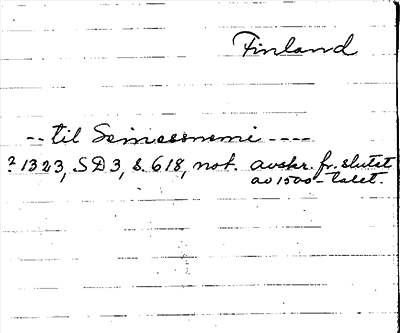 Finland
-- til Seimesnemi ----
? 1323, SD3, s. 618, not. avskr. fr. slutet
av 1500-talet.